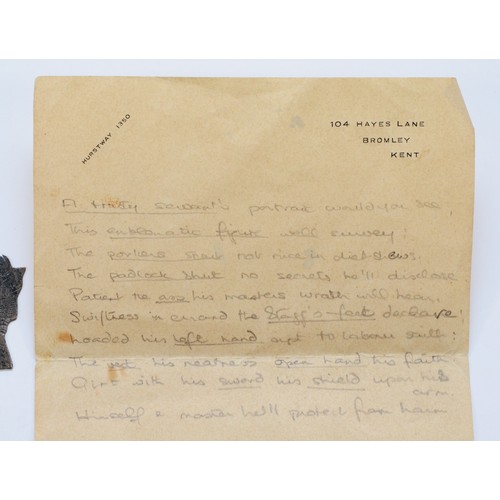 HURSTWAY 1350
104 HAYES LANE
BROMLEY
KENT
A trusty servant's portrait would you see,
This emblematic figure well survey:
The porkers snout not nice in diet shows.
The padlock shut no secrets he'll disclose
Patient the ass his masters wrath will hear,
Swiftness in errand the Stagg's-feet declare:
Loaded his left hand apt to labour saith:
The vest, his neatness open hand his faith
Girt with his sword his shield upon his
arm
Himself & master he'll protect from harm